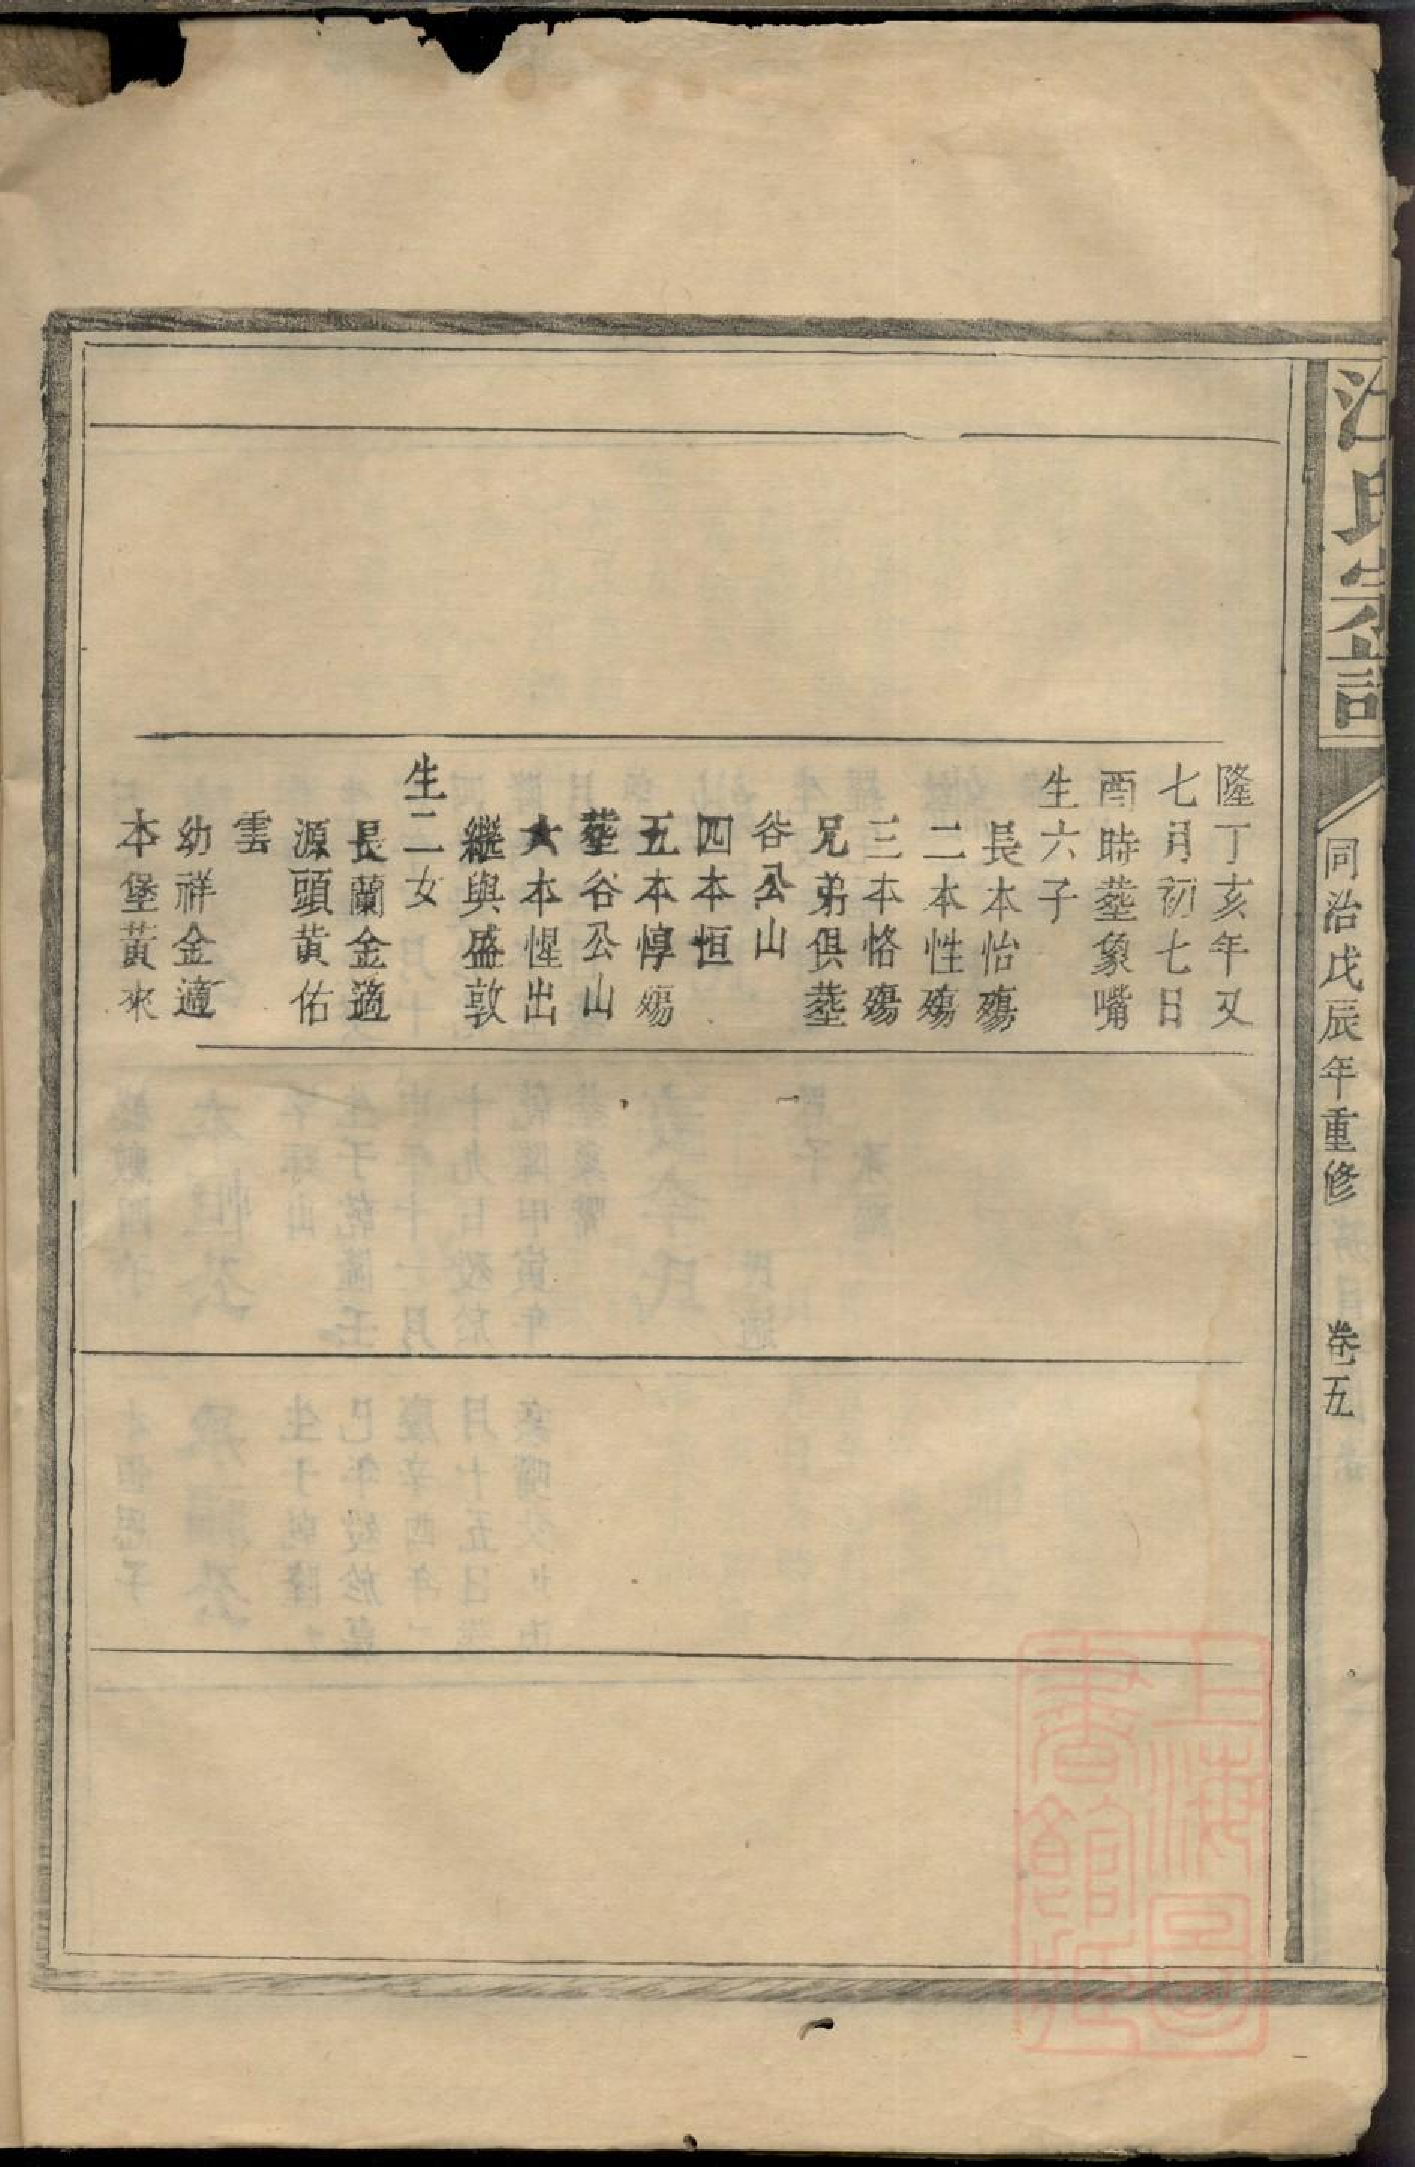 江氏宗譜
同治戊辰年重修 卷五
隆丁亥年又
七月初七日
酉時塟象嘴
生六子
長本怡殤
二本性殤
三本恪殤
兄弟俱塟
谷公山
四本恒
五本惇殤
塟谷公山
六本惺出
繼與盛敦
生二女
長蘭金適
源頭黄佑
雲
幼祥金適
本堡黄來
上海圖
書館藏